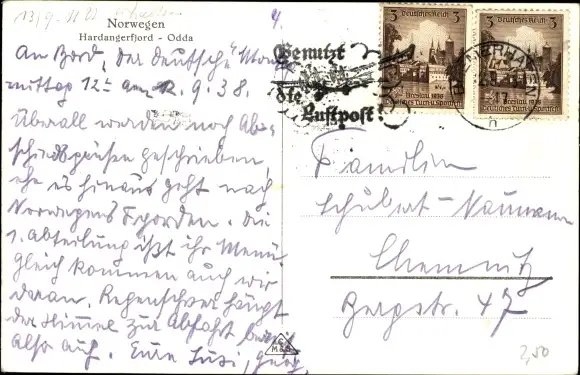 13/9. 11
4.
Norwegen
Hardangerfjord - Odda
An Bord, "Der Deutsche" Mon
mittag 12 am 12. 9. 38.
Überall werden noch Ab-
schiedsgrüße geschrieben
ehe es hinaus geht nach
Norwegens Fjorden. Die
1. Abteilung ißt ihr Menü.
Gleich kommen auch wir
daran. Regenschwer hängt
der Himmel zur Abfahrt
also auf. Eure Susi, Georg
Benutzt
die
Luftpost!
Deutsches Reich
3
Breslau 1938
Deutsches Turn- u. Sportfest
Deutsches Reich
3
Breslau 1938
Deutsches Turn- u. Sportfest
Familien
Schubert-Naumann
Chemnitz
Bergstr. 47
2,50